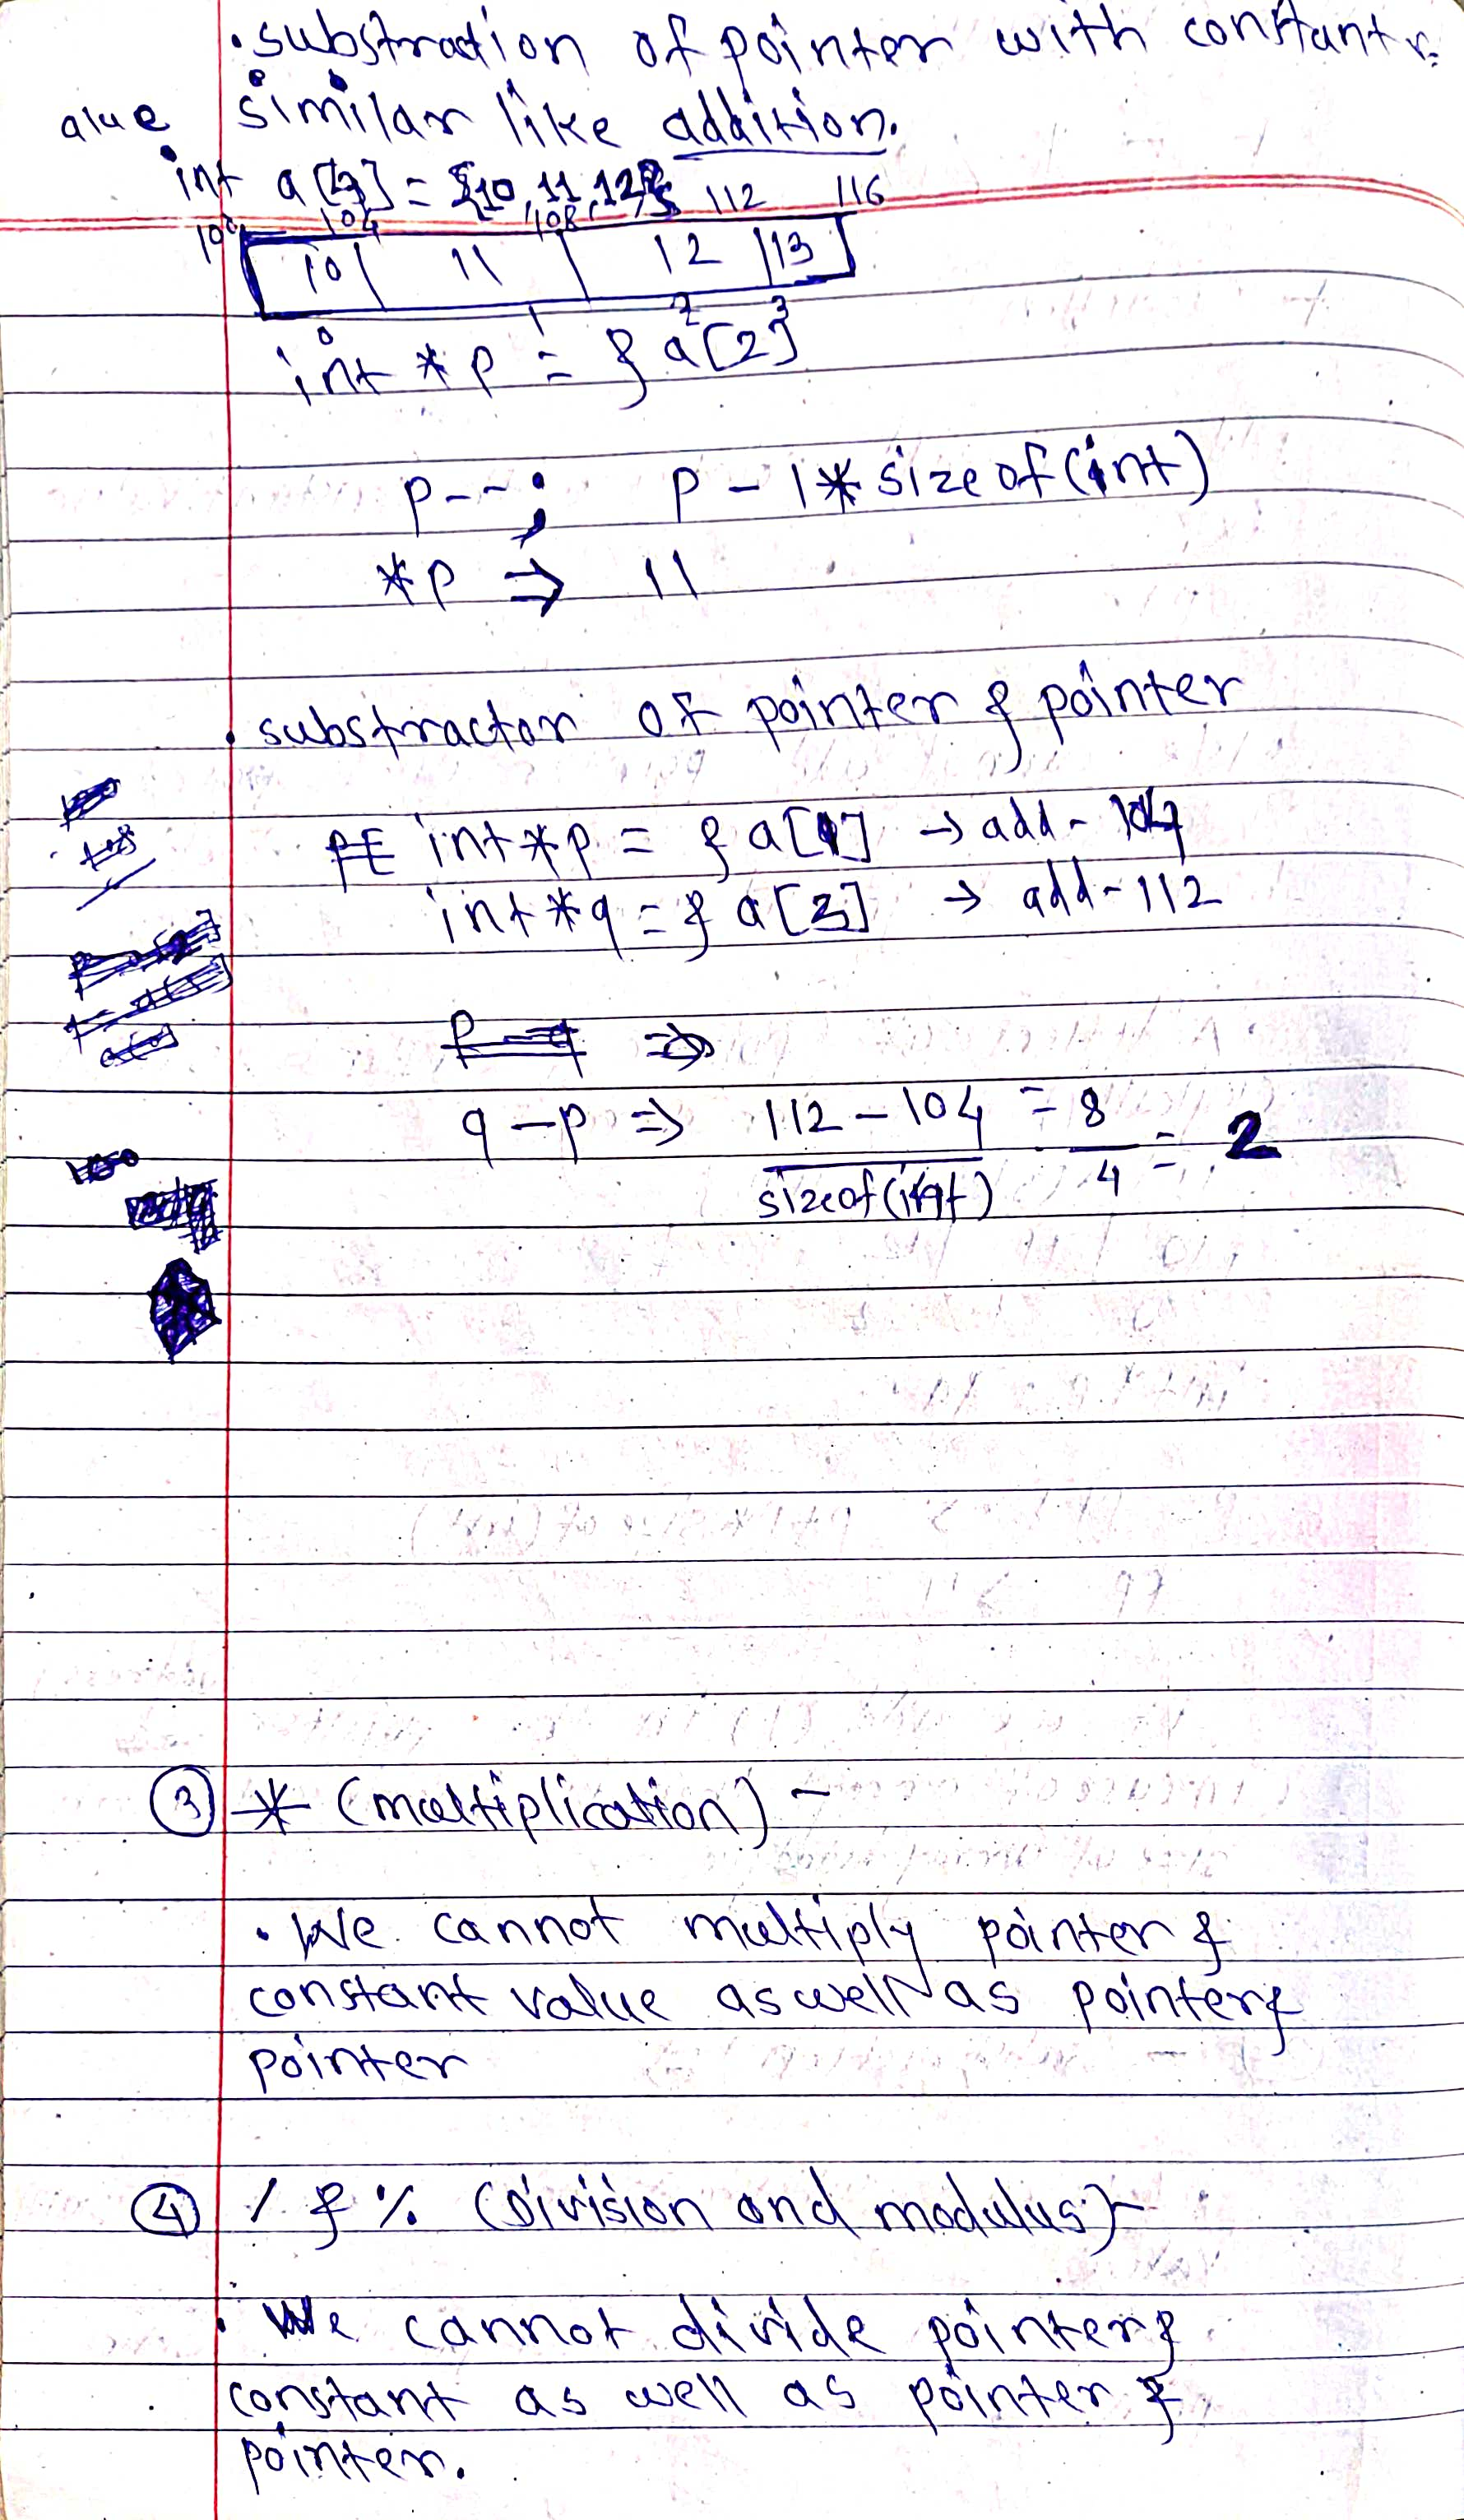 • substraction of pointer with constant v-
alue similar like addition.
int a[4] = {10, 11, 12}
100 104 108 112 116
10 | 11 | 12 | 13
0 1 2 3
int *p = & a[2]
p--; p - 1 * sizeof(int)
*p ⇒ 11
• substractor of pointer & pointer
int *p = & a[1] → add - 104
int *q = & a[3] → add - 112
p - q ⇒
q - p ⇒ 112 - 104 = 8 = 2
sizeof(int) 4
③ * (multiplication) -
• We cannot multiply pointer &
constant value aswell as pointer &
pointer
④ / & % (Division and modulus) -
• We cannot divide pointer &
constant as well as pointer &
pointer.